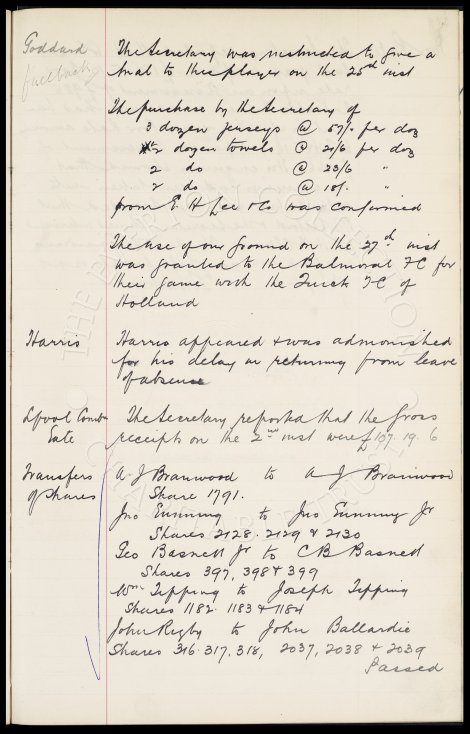 Goddard
fullback
The Secretary was instructed to give a
trial to this player on the 25th inst
The purchase by the Secretary of
3 dozen jerseys @ 57/- per doz
2 dozen towels @ 21/6 per doz
2 do @ 23/6 "
2 do @ 18/- "
from E H Lee & Co was confirmed
The use of our ground on the 27th inst
was granted to the Balmoral FC for
their game with the Quick FC of
Holland
Harris
Harris appeared & was admonished
for his delay in returning from leave
of absence
Lpool Comb
Gate
The Secretary reported that the Gross
receipts on the 2nd inst were £107.19.6
Transfers
of Shares
A J Branwood to A J Branwood
Share 1791.
Jno to Jno Jr
Shares 2128. 2129 & 2130
Geo Basnett Jr to C B Basnett
Shares 397, 398 & 399
Wm Tipping to Joseph Tipping
Shares 1182. 1183 & 1184
John Rigby to John Ballardie
Shares 316. 317. 318, 2037, 2038 & 2039
Passed